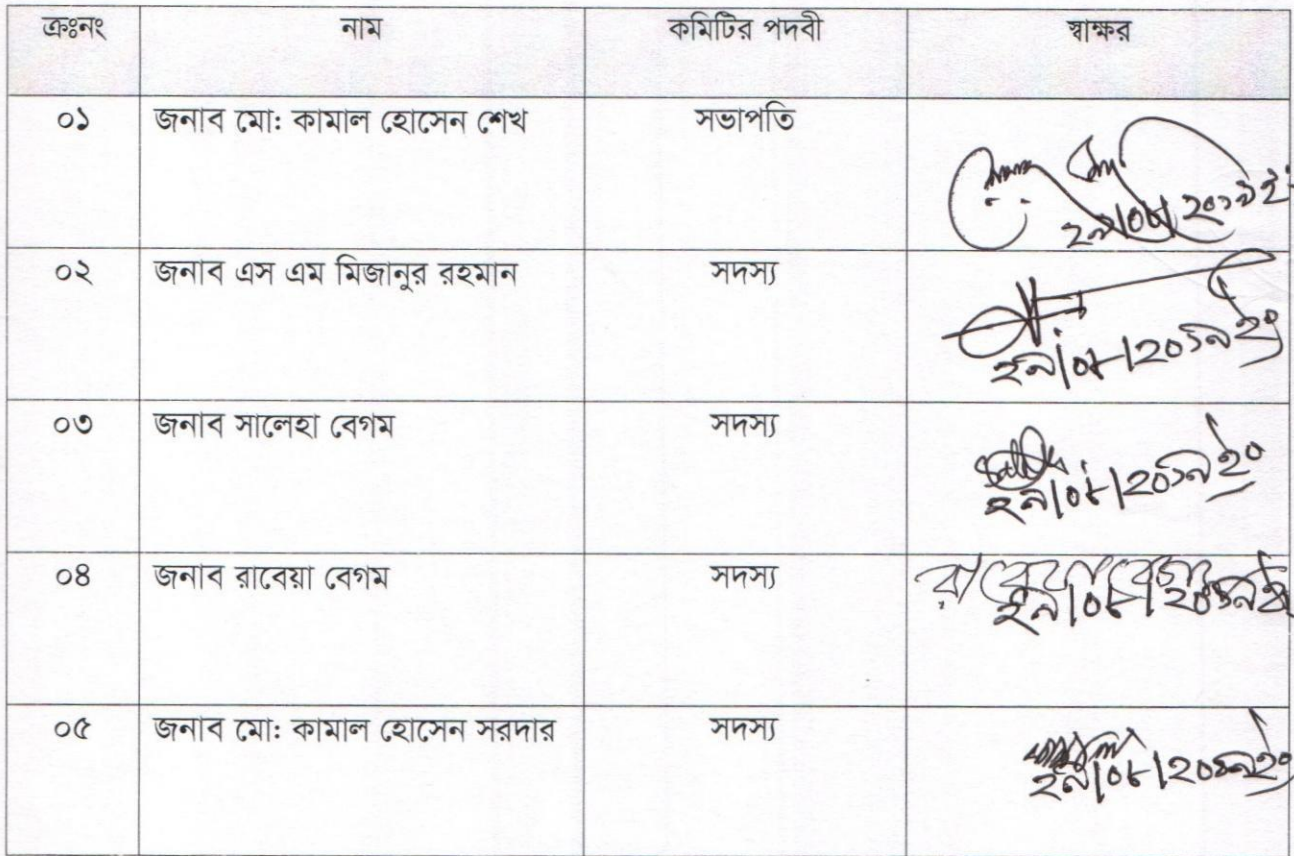 ক্রঃনং নাম কমিটির পদবী স্বাক্ষর
০১ জনাব মো: কামাল হোসেন শেখ সভাপতি
২৯/০৮/২০১৯ইং
০২ জনাব এস এম মিজানুর রহমান সদস্য
২৯/০৮/২০১৯ইং
০৩ জনাব সালেহা বেগম সদস্য
২৯/০৮/২০১৯ইং
০৪ জনাব রাবেয়া বেগম সদস্য রাবেয়া বেগম
২৯/০৮/২০১৯ইং
০৫ জনাব মো: কামাল হোসেন সরদার সদস্য
২৯/০৮/২০১৯ইং